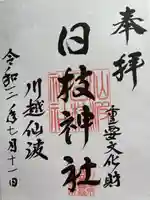 奉拝
重要文化財
日枝神社
川越仙波
令和二年七月十一日